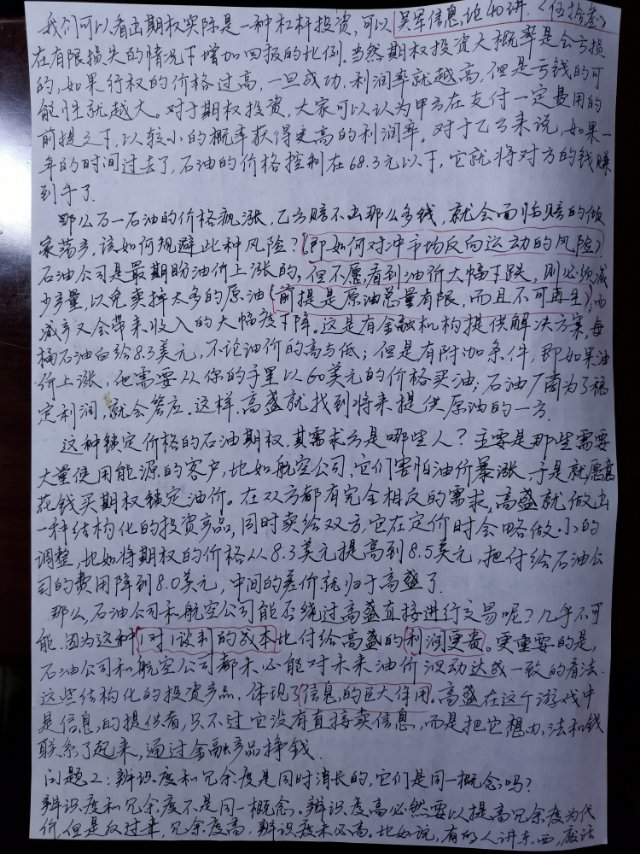 我们可以看出期权实际是一种杠杆投资,可以 吴军信息论40讲.《伍拾叁》
在有限损失的情况下增加回报的比例。当然期权投资大概率是会亏损
的,如果行权的价格过高,一旦成功,利润率就越高,但是亏钱的可
能性就越大。对于期权投资,大家可以认为甲方在支付一定费用的
前提之下,以较小的概率获得更高的利润率。对于乙方来说,如果一
年的时间过去了,石油的价格控制在68.3元以下,它就将对方的钱赚
到手了.
那么万一石油的价格疯涨,乙方赔不出那么多钱,就会面临赔的倾
家荡产,该如何规避此种风险?(即如何对冲市场反向运动的风险)
石油公司是最期盼油价上涨的,但不愿看到油价大幅下跌,则必须减
少产量,以免卖掉太多的原油(前提是原油总量有限,而且不可再生),而
减产又会带来收入的大幅度下降。这是有金融机构提供解决方案,每
桶石油白给8.3美元,不论油价的高与低;但是有附加条件,即如果油
价上涨,他需要从你的手里以60美元的价格买油;石油厂商为了稳
定利润,就会答应.这样,高盛就找到将来提供原油的一方.
这种锁定价格的石油期权,其需求方是哪些人?主要是那些需要
大量使用能源的客户,比如航空公司,它们害怕油价暴涨,于是就愿意
花钱买期权锁定油价。在双方都有完全相反的需求,高盛就做出
一种结构化的投资产品,同时卖给双方,它在定价时会略做小的
调整,比如将期权的价格从8.3美元提高到8.5美元,把付给石油公
司的费用降到8.0美元,中间的差价就归于高盛了.
那么,石油公司和航空公司能否绕过高盛直接进行交易呢?几乎不可
能.因为这种1对1谈判的成本比付给高盛的利润更贵。更重要的是,
石油公司和航空公司都未必能对未来油价波动达成一致的看法.
这些结构化的投资产品,体现了信息的巨大作用。高盛在这个游戏中
是信息的提供者,只不过它没有直接卖信息,而是把它想办法和钱
联系了起来,通过金融产品挣钱.
问题2:辨识度和冗余度是同时消长的,它们是同一概念吗?
辨识度和冗余度不是同一概念,辨识度高必然要以提高冗余度为代
价,但是反过来,冗余度高,辨识度未必高。比如说,有的人讲东西,废话